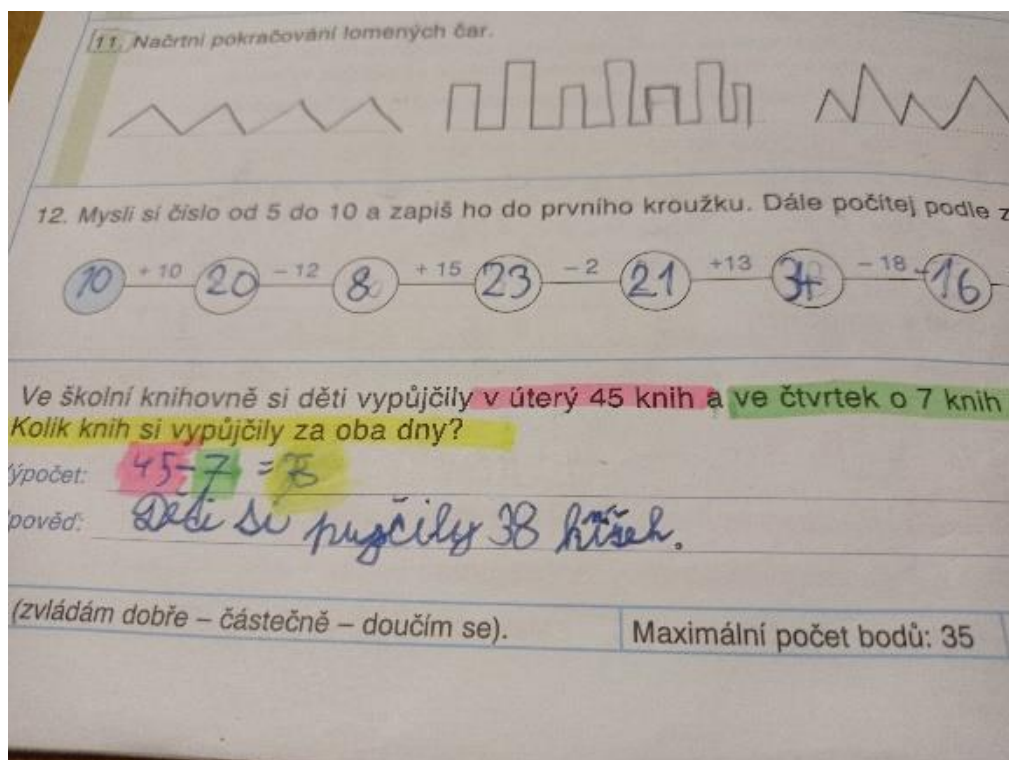 11. Načrtni pokračování lomených čar.
12. Mysli si číslo od 5 do 10 a zapiš ho do prvního kroužku. Dále počítej podle z
10 + 10 20 - 12 8 + 15 23 - 2 21 +13 34 - 18 16
Ve školní knihovně si děti vypůjčily v úterý 45 knih a ve čtvrtek o 7 knih
Kolik knih si vypůjčily za oba dny?
ýpočet: 45-7 =
pověď: Děti si pujčily 38
(zvládám dobře – částečně – doučím se).
Maximální počet bodů: 35